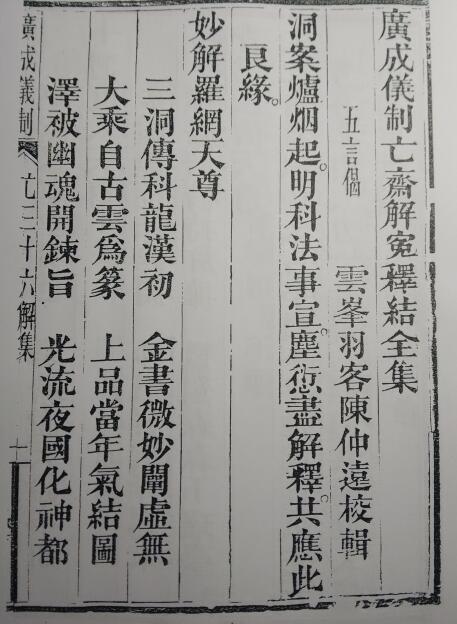 廣成儀制亡齋解冤釋結全集
雲峯羽客陳仲遠校輯
五言偈
洞案爐烟起。明科法事宣。塵愆盡解釋。共應此
良緣。
妙解羅網天尊
三洞傳科龍漢初 金書微妙闡虛無
大乘自古雲爲篆 上品當年氣結圖
澤被幽魂開鍊旨 光流夜國化神都
廣成儀制 亡三十六解集 一